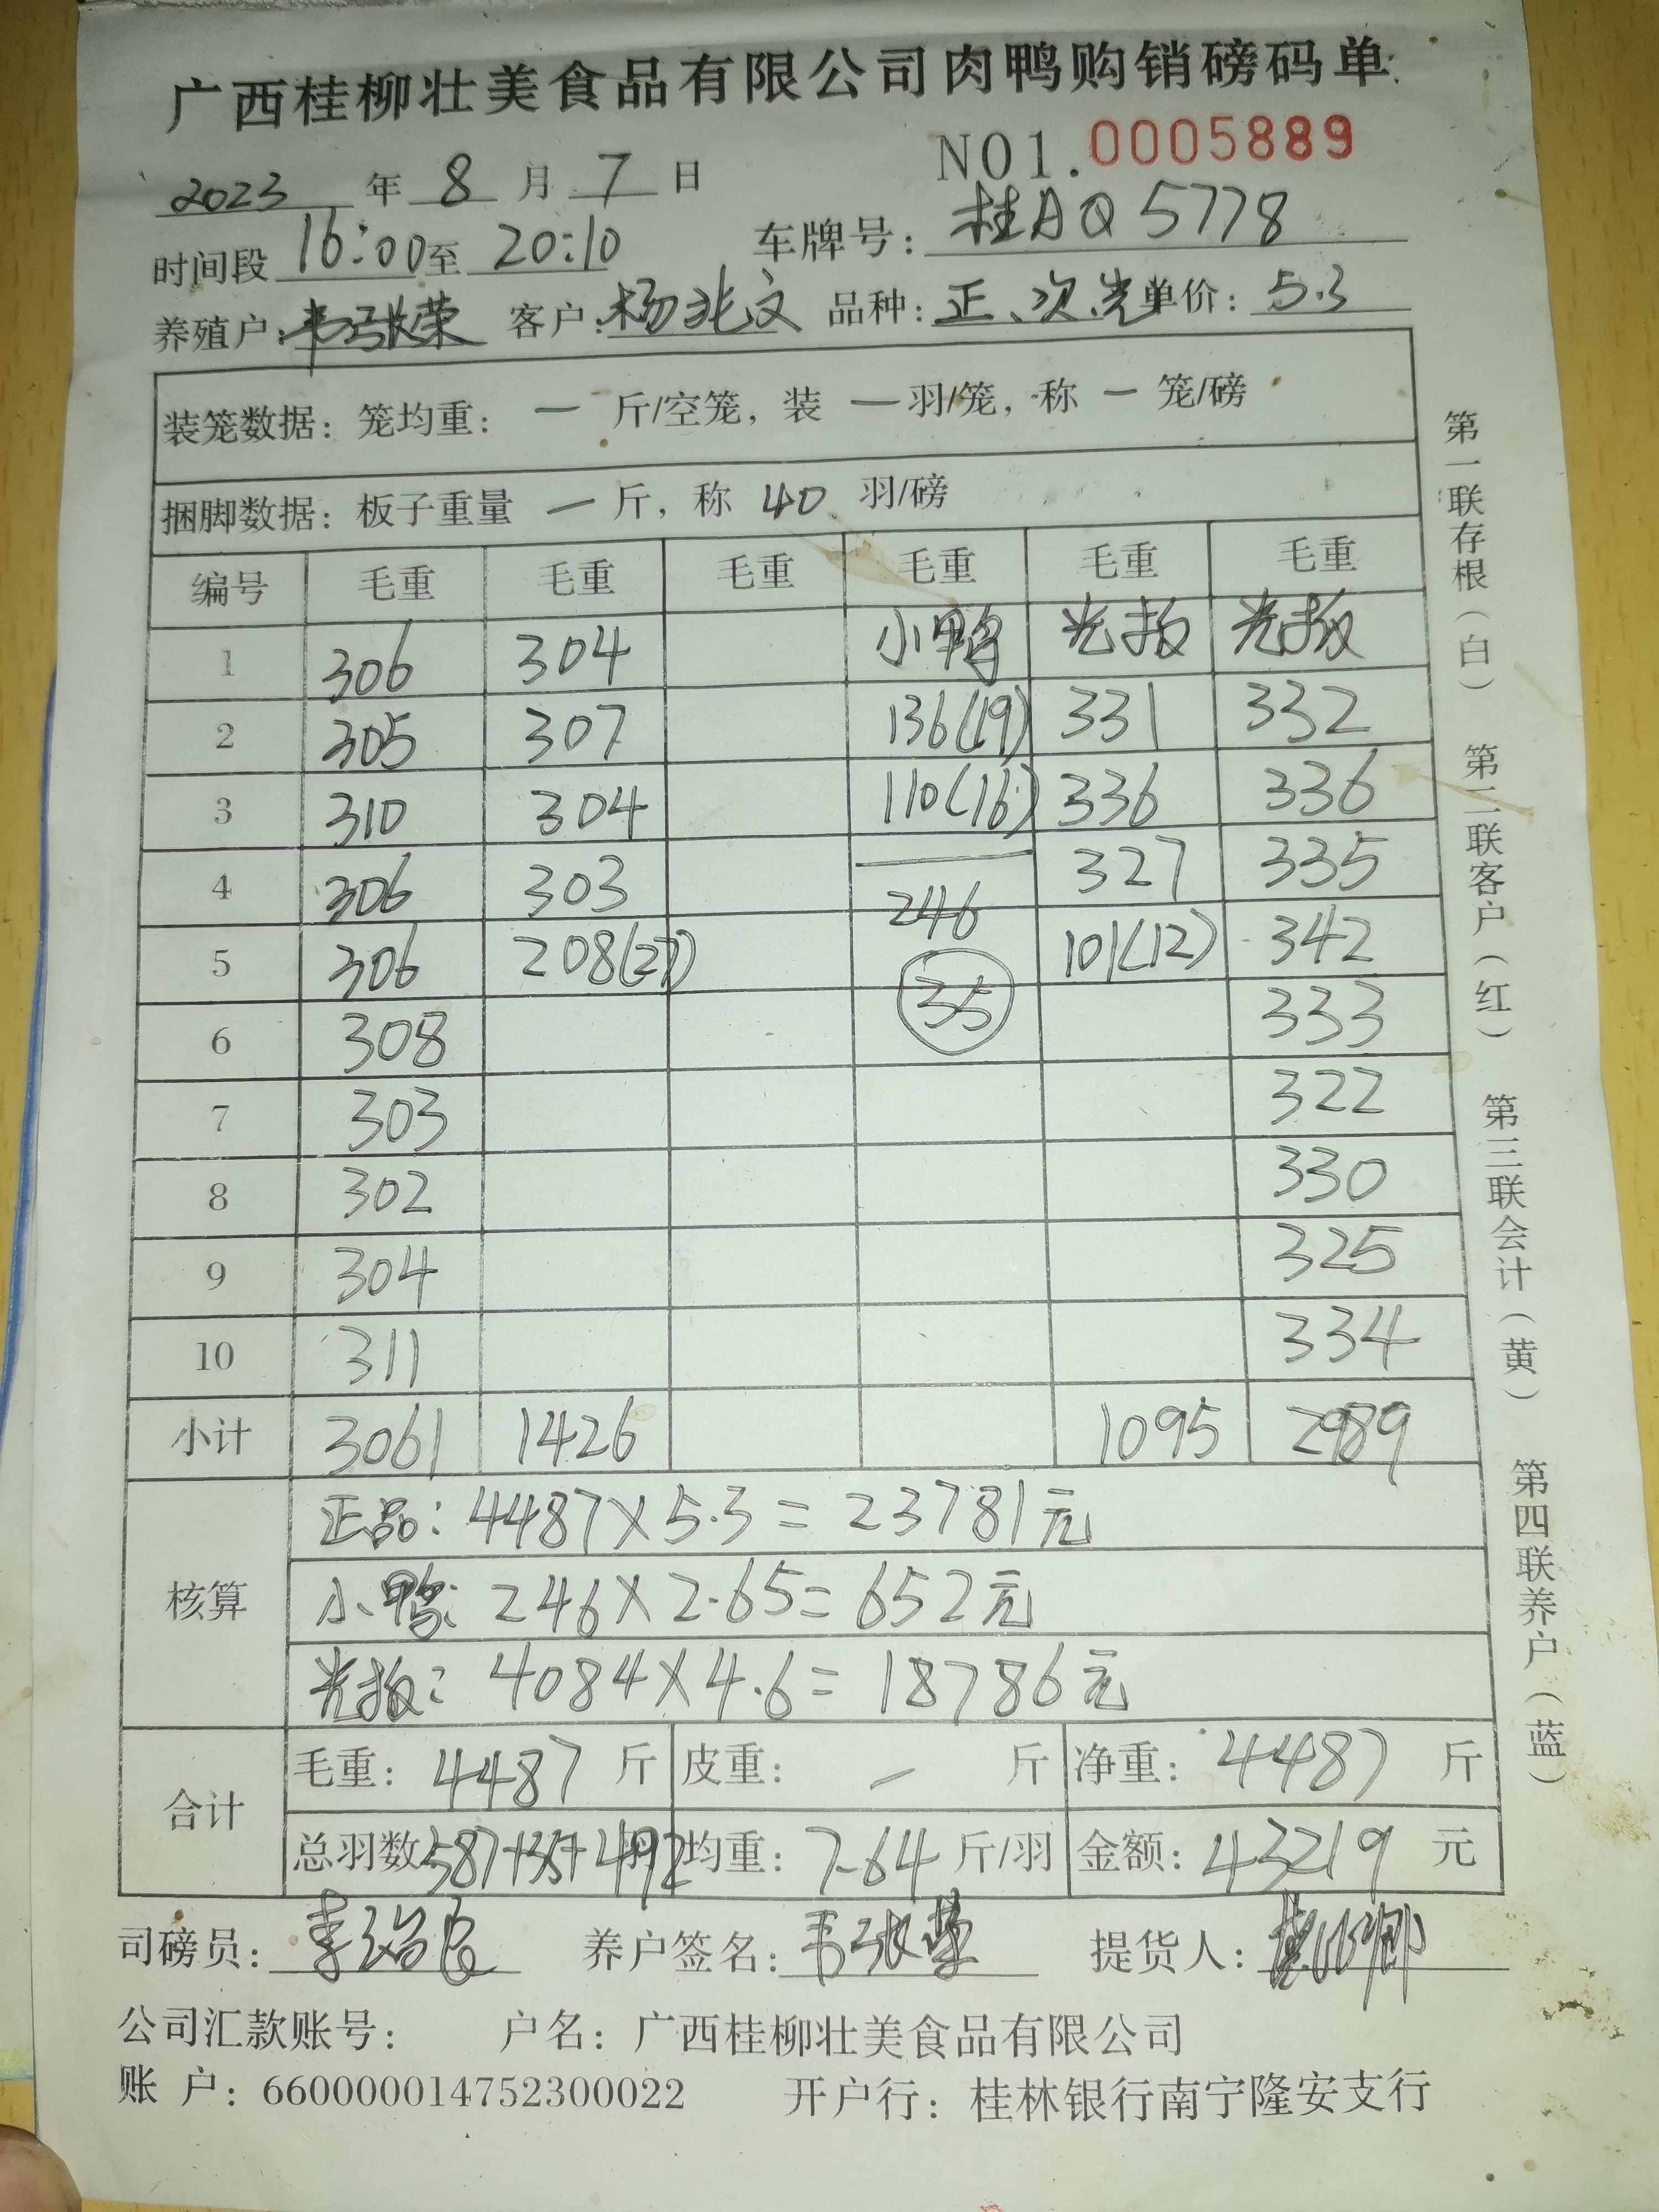 广西桂柳壮美食品有限公司肉鸭购销磅码单
NO1.0005889
2023年8月7日
时间段16:00至20:10 车牌号:桂AQ5778
养殖户:韦张荣 客户:杨兆文 品种:正、次、光 单价:5.3
装笼数据:笼均重:一斤/空笼,装一羽/笼,称一笼/磅
捆脚数据:板子重量一斤,称40羽/磅
编号 毛重 毛重 毛重 毛重 毛重 毛重
1 306 304 小鸭 光板 光板
2 305 307 136(19) 331 332
3 310 304 110(16) 336 336
4 306 303 246 327 335
5 306 208(27) 35 101(12) 342
6 308 333
7 303 322
8 302 330
9 304 325
10 311 334
小计 3061 1426 1095 2989
核算
正品:4487×5.3=23781元
小鸭:246×2.65=652元
光板:4084×4.6=18786元
合计
毛重:4487斤 皮重:一斤 净重:4487斤
总羽数587+35+492 均重:7.64斤/羽 金额:43219元
司磅员: 养户签名:韦张荣 提货人:
公司汇款账号: 户名:广西桂柳壮美食品有限公司
账 户:660000014752300022 开户行:桂林银行南宁隆安支行
第一联存根(白) 第二联客户(红) 第三联会计(黄) 第四联养户(蓝)